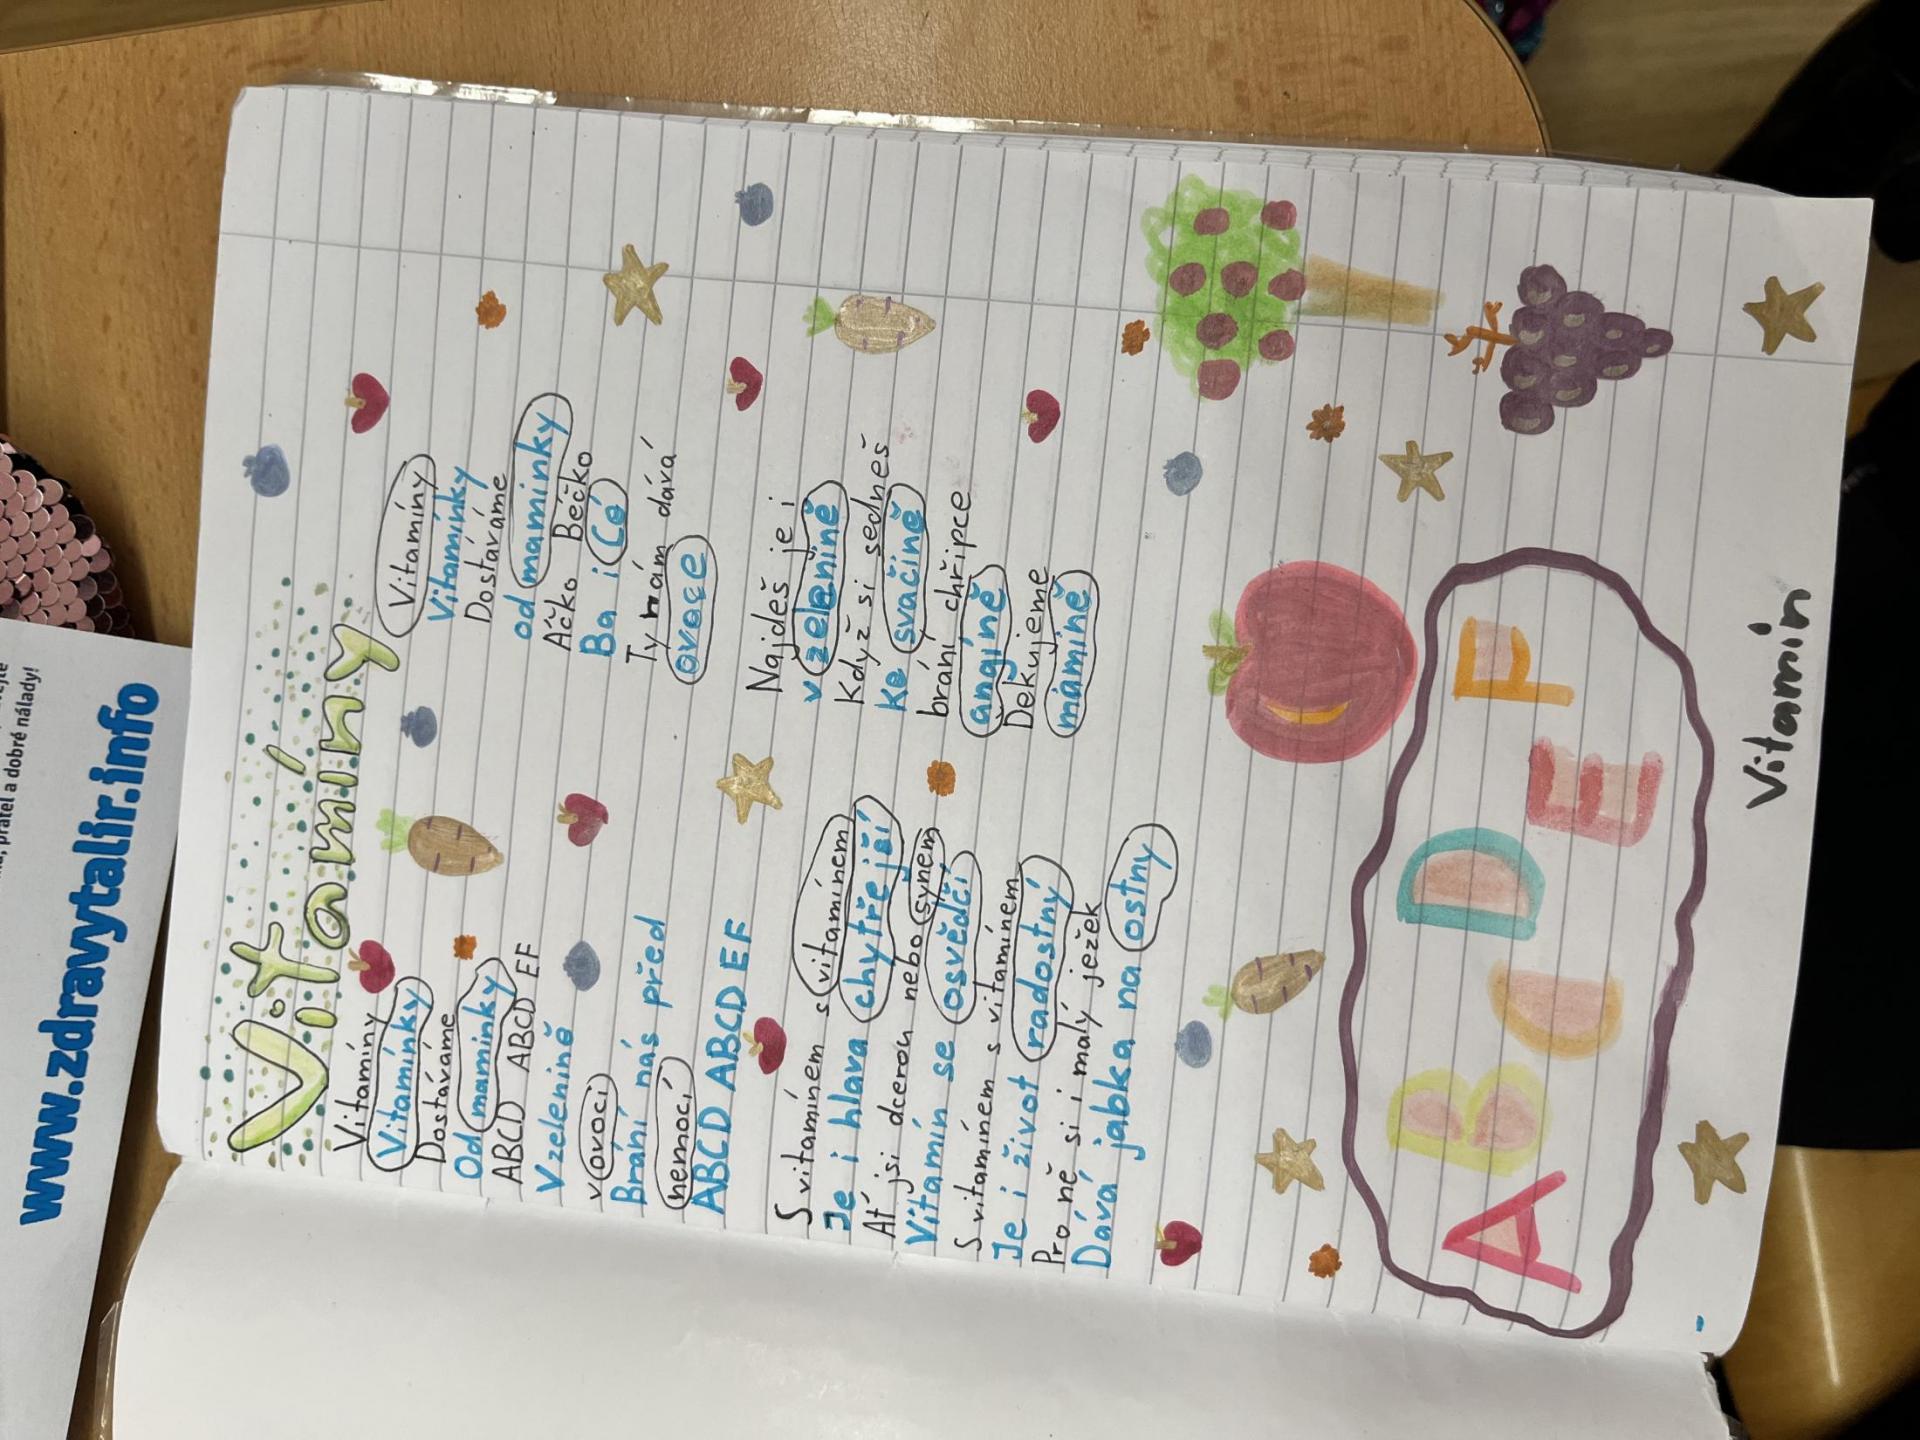 Vitamíny
Vitamíny
Vitamínky
Dostáváme
Od maminky
ABCD ABCD EF
V zelenině
v ovoci
Brání nás před
nemocí
ABCD ABCD EF
S vitamínem s vitamínem
Je i hlava chytřejší
Ať jsi dcerou nebo synem
Vitamín se osvědčí
S vitamínem s vitamínem
Je i život radostný
Pro ně si i malý ježek
Dává jabka na ostny
Vitamíny
Vitamínky
Dostáváme
od maminky
Áčko Béčko
Ba i Cé
Ty nám dává
ovoce
Najdeš je i
v zelenině
Když si sedneš
ke svačině
brání chřipce
angíně
Dekujeme
mamině
A B C D E F
Vitamin
přátel a dobré nálady!
www.zdravytalir.info